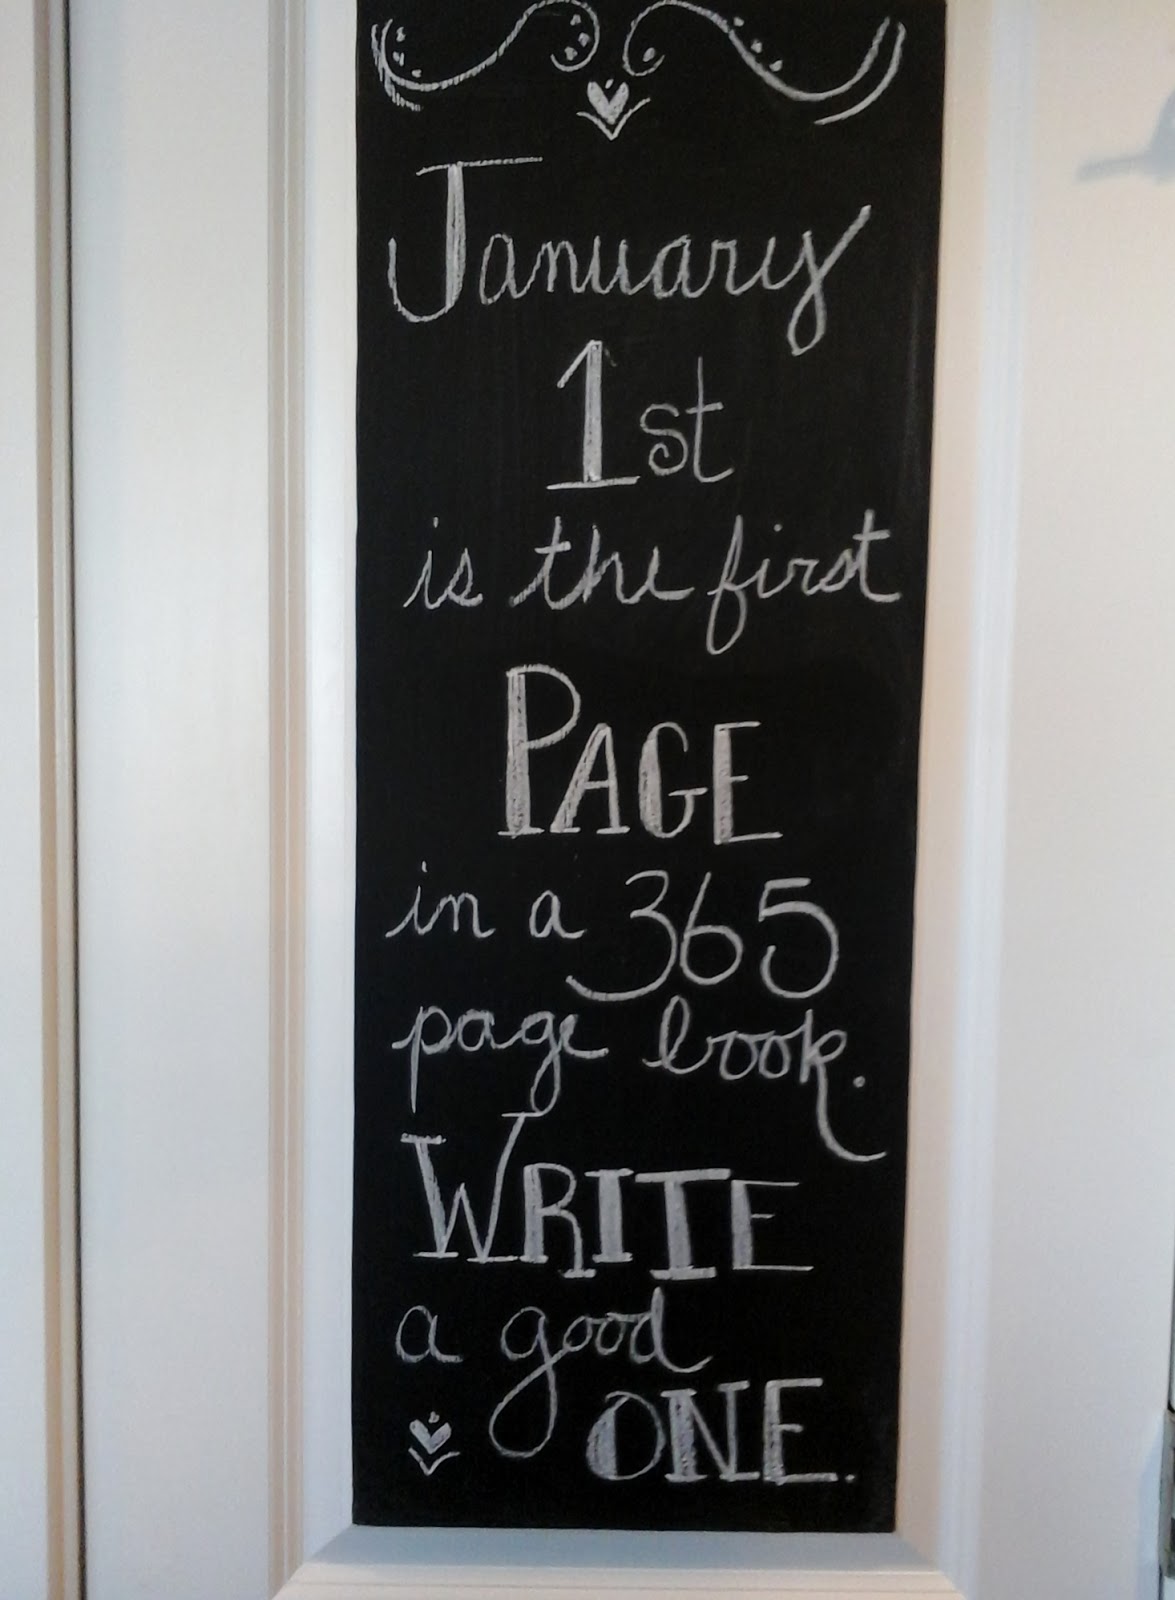 January
1st
is the first
PAGE
in a 365
page book.
WRITE
a good
ONE.